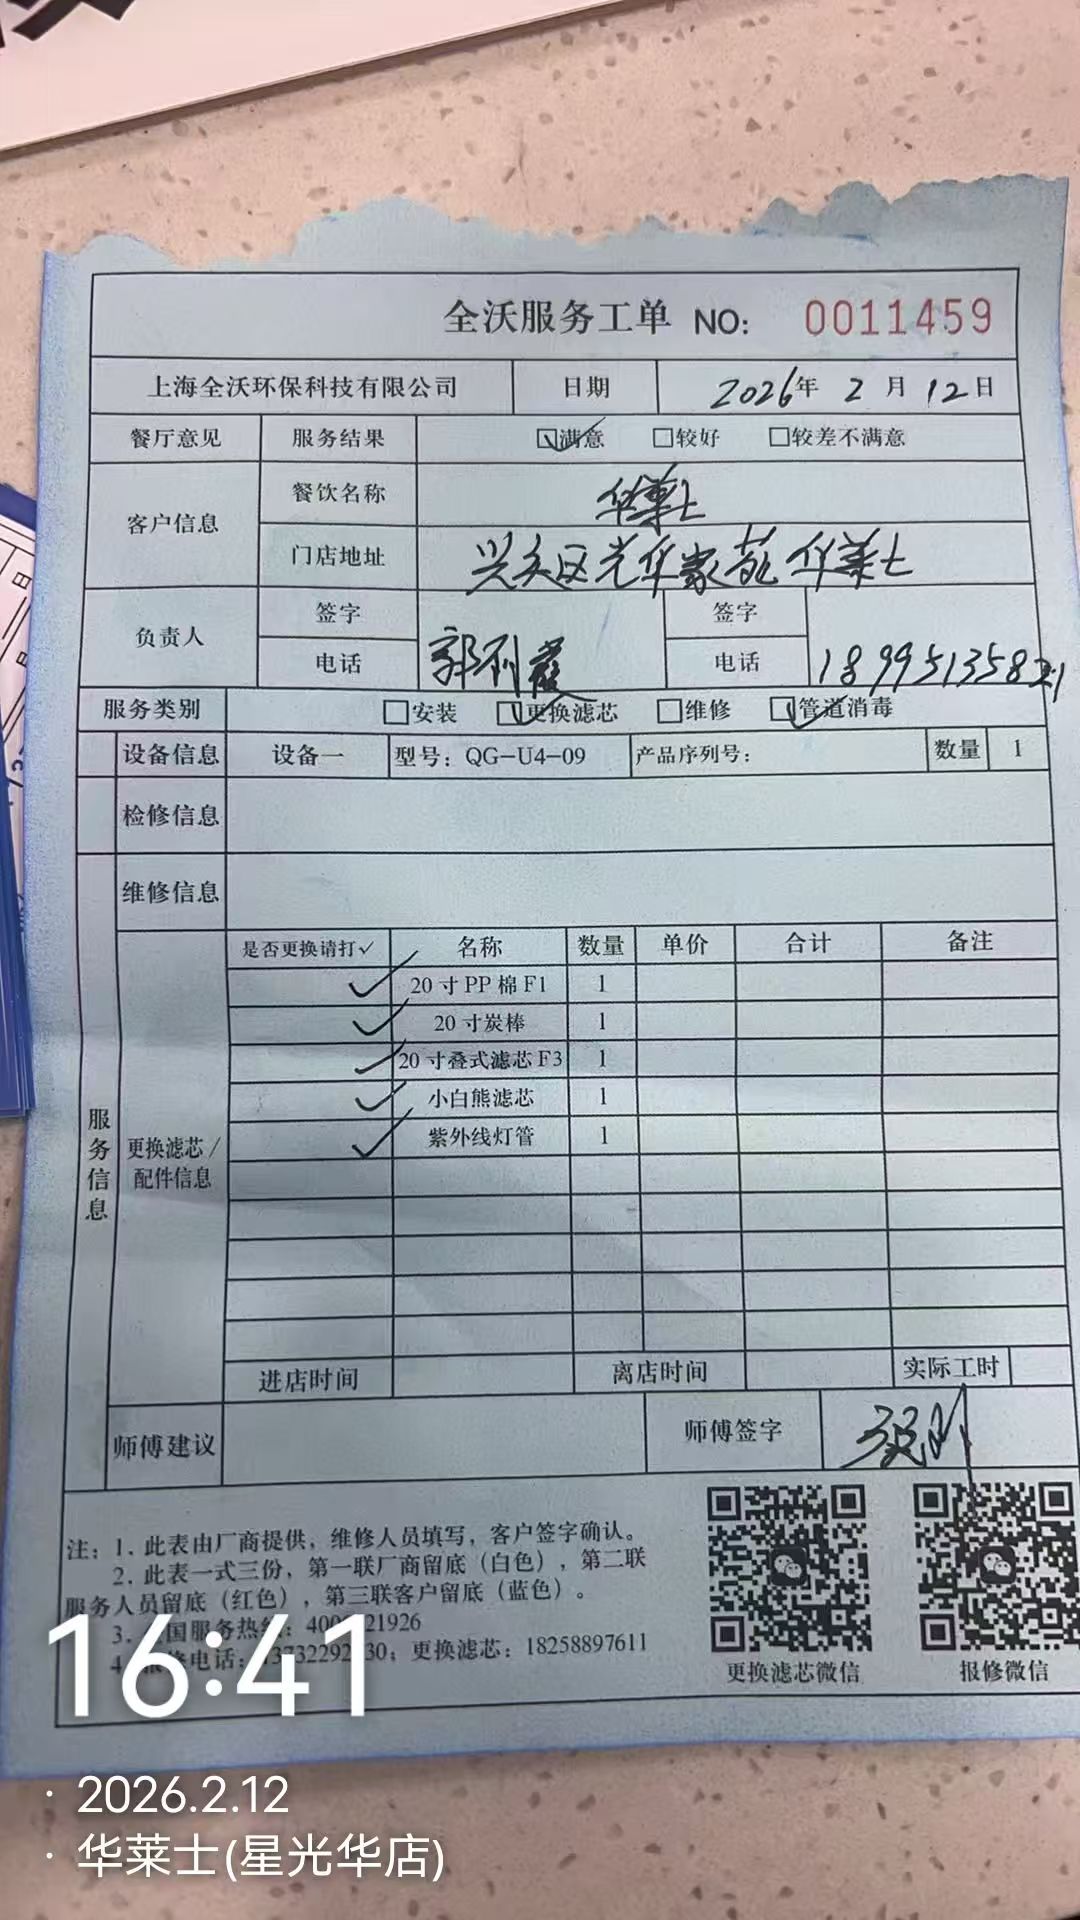 全沃服务工单 NO: 0011459
上海全沃环保科技有限公司 日期 2026年 2 月 12日
餐厅意见 服务结果 满意 较好 较差不满意
客户信息 餐饮名称 华莱士
门店地址 兴庆区光华家苑华莱士
负责人 签字 签字
电话 郭 霞 电话
服务类别 安装 更换滤芯 维修 管道消毒
设备信息 设备一 型号：QG-U4-09 产品序列号： 数量 1
检修信息
维修信息
是否更换请打✓ 名称 数量 单价 合计 备注
✓ 20寸PP棉F1 1
✓ 20寸炭棒 1
✓ 20寸叠式滤芯F3 1
✓ 小白熊滤芯 1
✓ 紫外线灯管 1
服务信息
更换滤芯/
配件信息
进店时间 离店时间 实际工时
师傅建议 师傅签字
注：1. 此表由厂商提供，维修人员填写，客户签字确认。
2. 此表一式三份，第一联厂商留底（白色），第二联
服务人员留底（红色），第三联客户留底（蓝色）。
3. 国服务热线：400 21926
4. 电话： 更换滤芯：18258897611
更换滤芯微信 报修微信
16:41
· 2026.2.12
· 华莱士(星光华店)